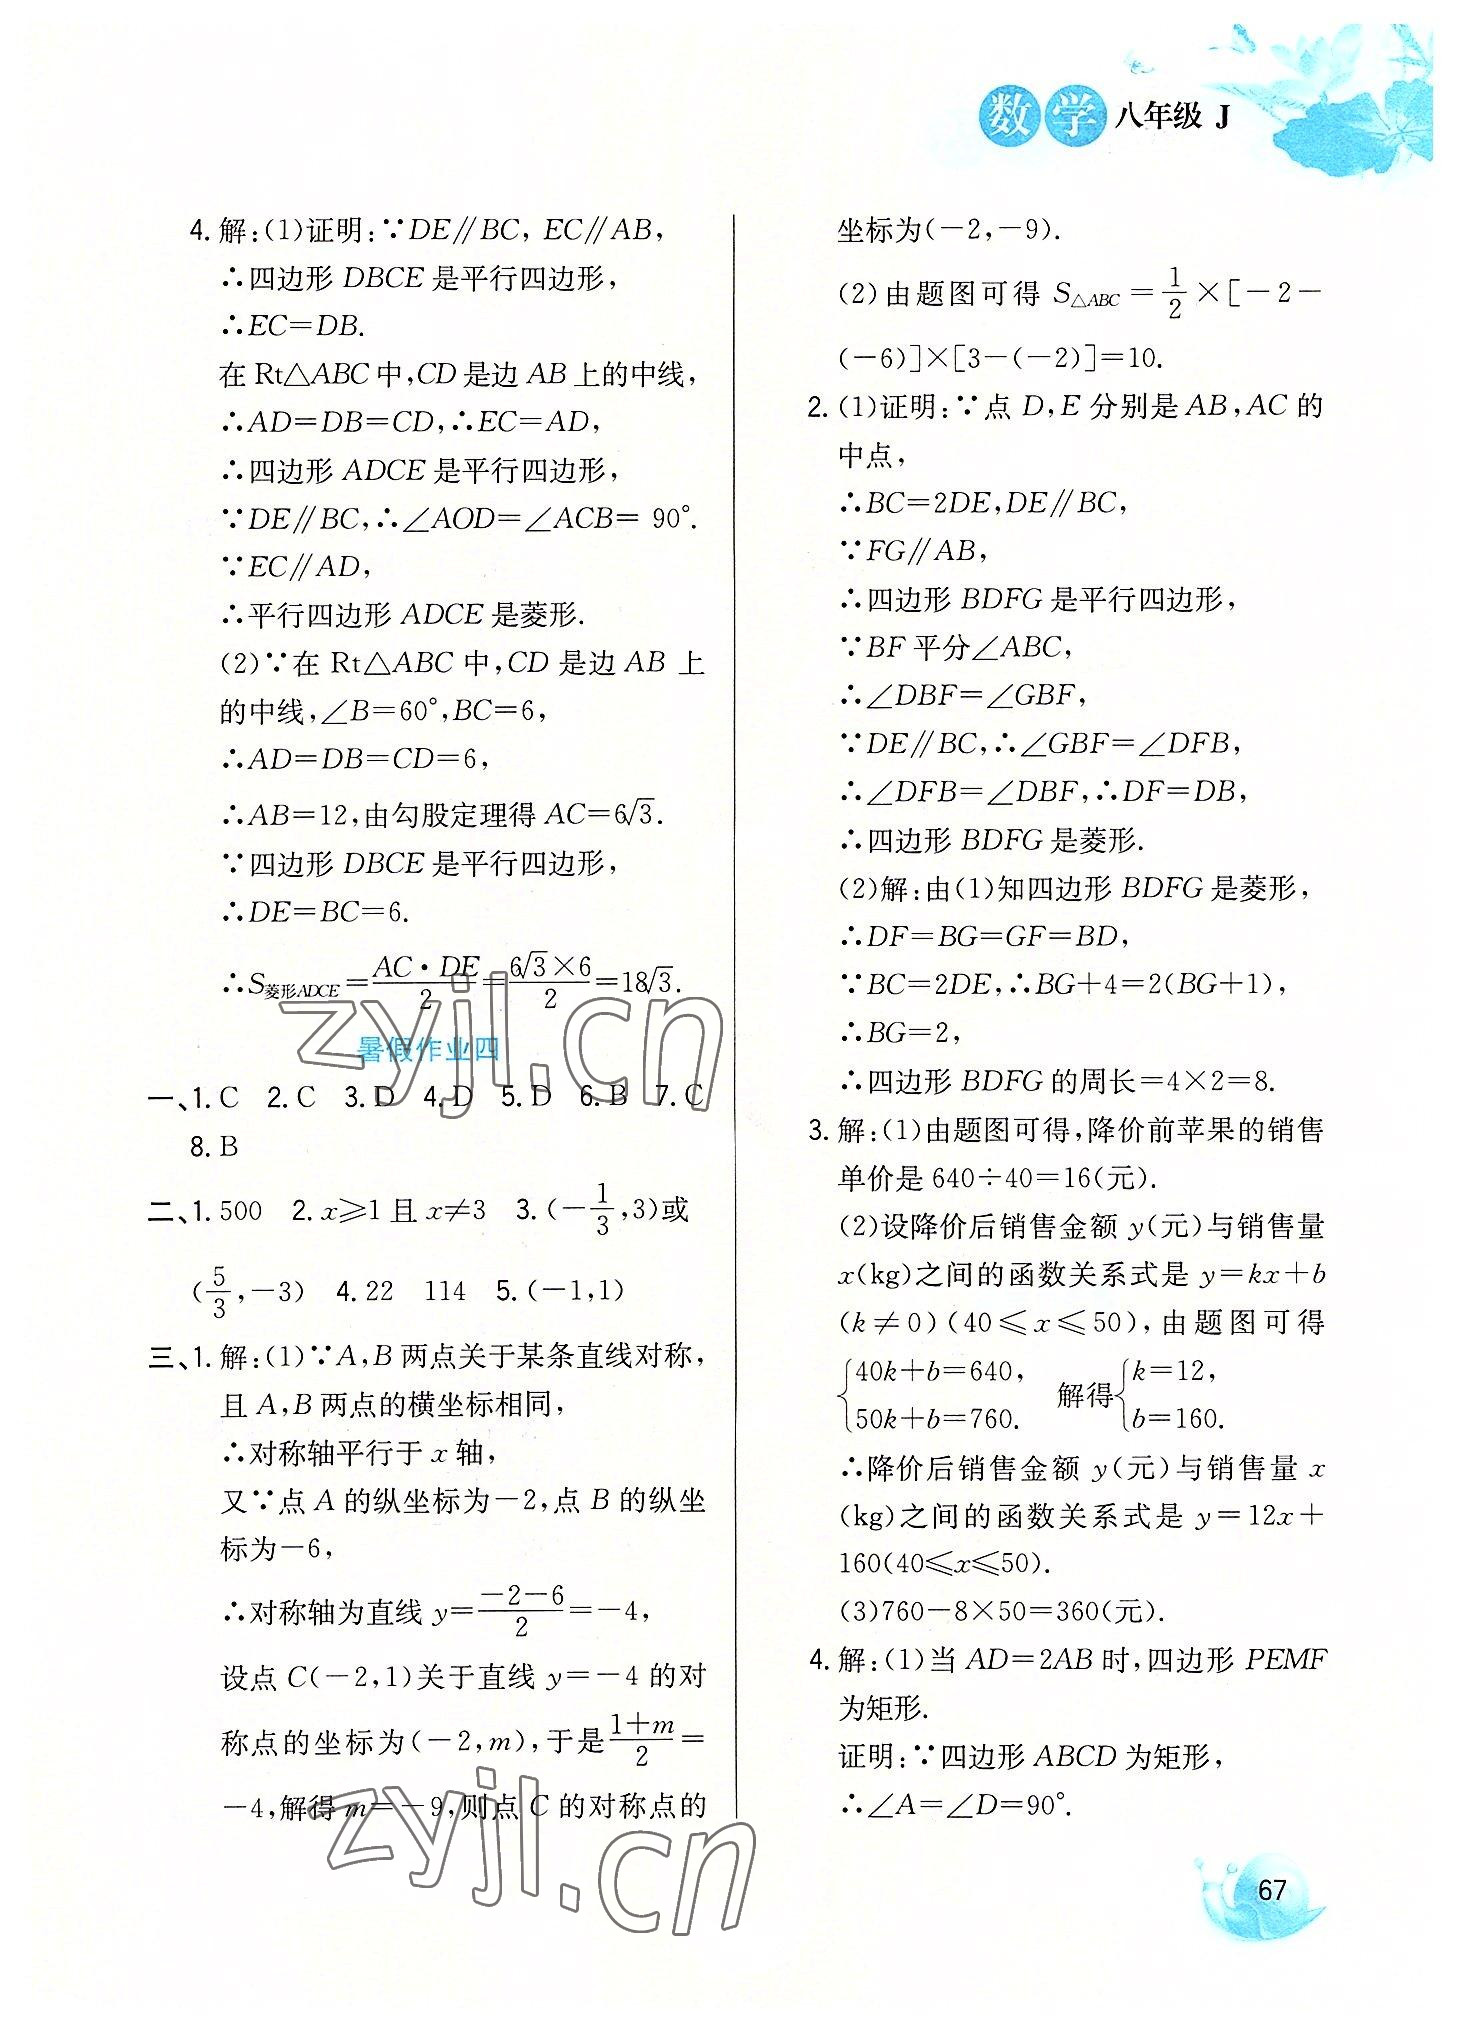 数学八年级 J
4. 解:(1)证明:∵DE∥BC, EC∥AB,
∴四边形 DBCE 是平行四边形,
∴EC=DB.
在 Rt△ABC 中,CD 是边 AB 上的中线,
∴AD=DB=CD,∴EC=AD,
∴四边形 ADCE 是平行四边形,
∵DE∥BC,∴∠AOD=∠ACB= 90°.
∵EC∥AD,
∴平行四边形 ADCE 是菱形.
(2)∵在 Rt△ABC 中,CD 是边 AB 上
的中线,∠B=60°,BC=6,
∴AD=DB=CD=6,
∴AB=12,由勾股定理得 AC=6√3.
∵四边形 DBCE 是平行四边形,
∴DE=BC=6.
∴S菱形ADCE=AC·DE/2=6√3×6/2=18√3.
暑假作业四
一、1. C 2. C 3. D 4. D 5. D 6. B 7. C
8. B
二、1. 500 2. x⩾1 且 x≠3 3. (-1/3,3)或
(5/3,-3) 4. 22 114 5. (-1,1)
三、1. 解:(1)∵A,B 两点关于某条直线对称,
且 A,B 两点的横坐标相同,
∴对称轴平行于 x 轴,
又∵点 A 的纵坐标为-2,点 B 的纵坐
标为-6,
∴对称轴为直线 y=-2-6/2=-4,
设点 C(-2,1)关于直线 y=-4 的对
称点的坐标为(-2,m),于是1+m/2=
-4,解得 m=-9,则点 C 的对称点的
坐标为(-2,-9).
(2)由题图可得 S△ABC=1/2×[-2-
(-6)]×[3-(-2)]=10.
2. (1)证明:∵点 D,E 分别是 AB,AC 的
中点,
∴BC=2DE,DE∥BC,
∵FG∥AB,
∴四边形 BDFG 是平行四边形,
∵BF 平分∠ABC,
∴∠DBF=∠GBF,
∵DE∥BC,∴∠GBF=∠DFB,
∴∠DFB=∠DBF,∴DF=DB,
∴四边形 BDFG 是菱形.
(2)解:由(1)知四边形 BDFG 是菱形,
∴DF=BG=GF=BD,
∵BC=2DE,∴BG+4=2(BG+1),
∴BG=2,
∴四边形 BDFG 的周长=4×2=8.
3. 解:(1)由题图可得,降价前苹果的销售
单价是 640÷40=16(元).
(2)设降价后销售金额 y(元)与销售量
x(kg)之间的函数关系式是 y=kx+b
(k≠0)(40⩽x⩽50),由题图可得
{40k+b=640, 解得{k=12,
50k+b=760. b=160.
∴降价后销售金额 y(元)与销售量 x
(kg)之间的函数关系式是 y=12x+
160(40⩽x⩽50).
(3)760-8×50=360(元).
4. 解:(1)当 AD=2AB 时,四边形 PEMF
为矩形.
证明:∵四边形 ABCD 为矩形,
∴∠A=∠D=90°.
67
zyjl.cn
zyjl.cn